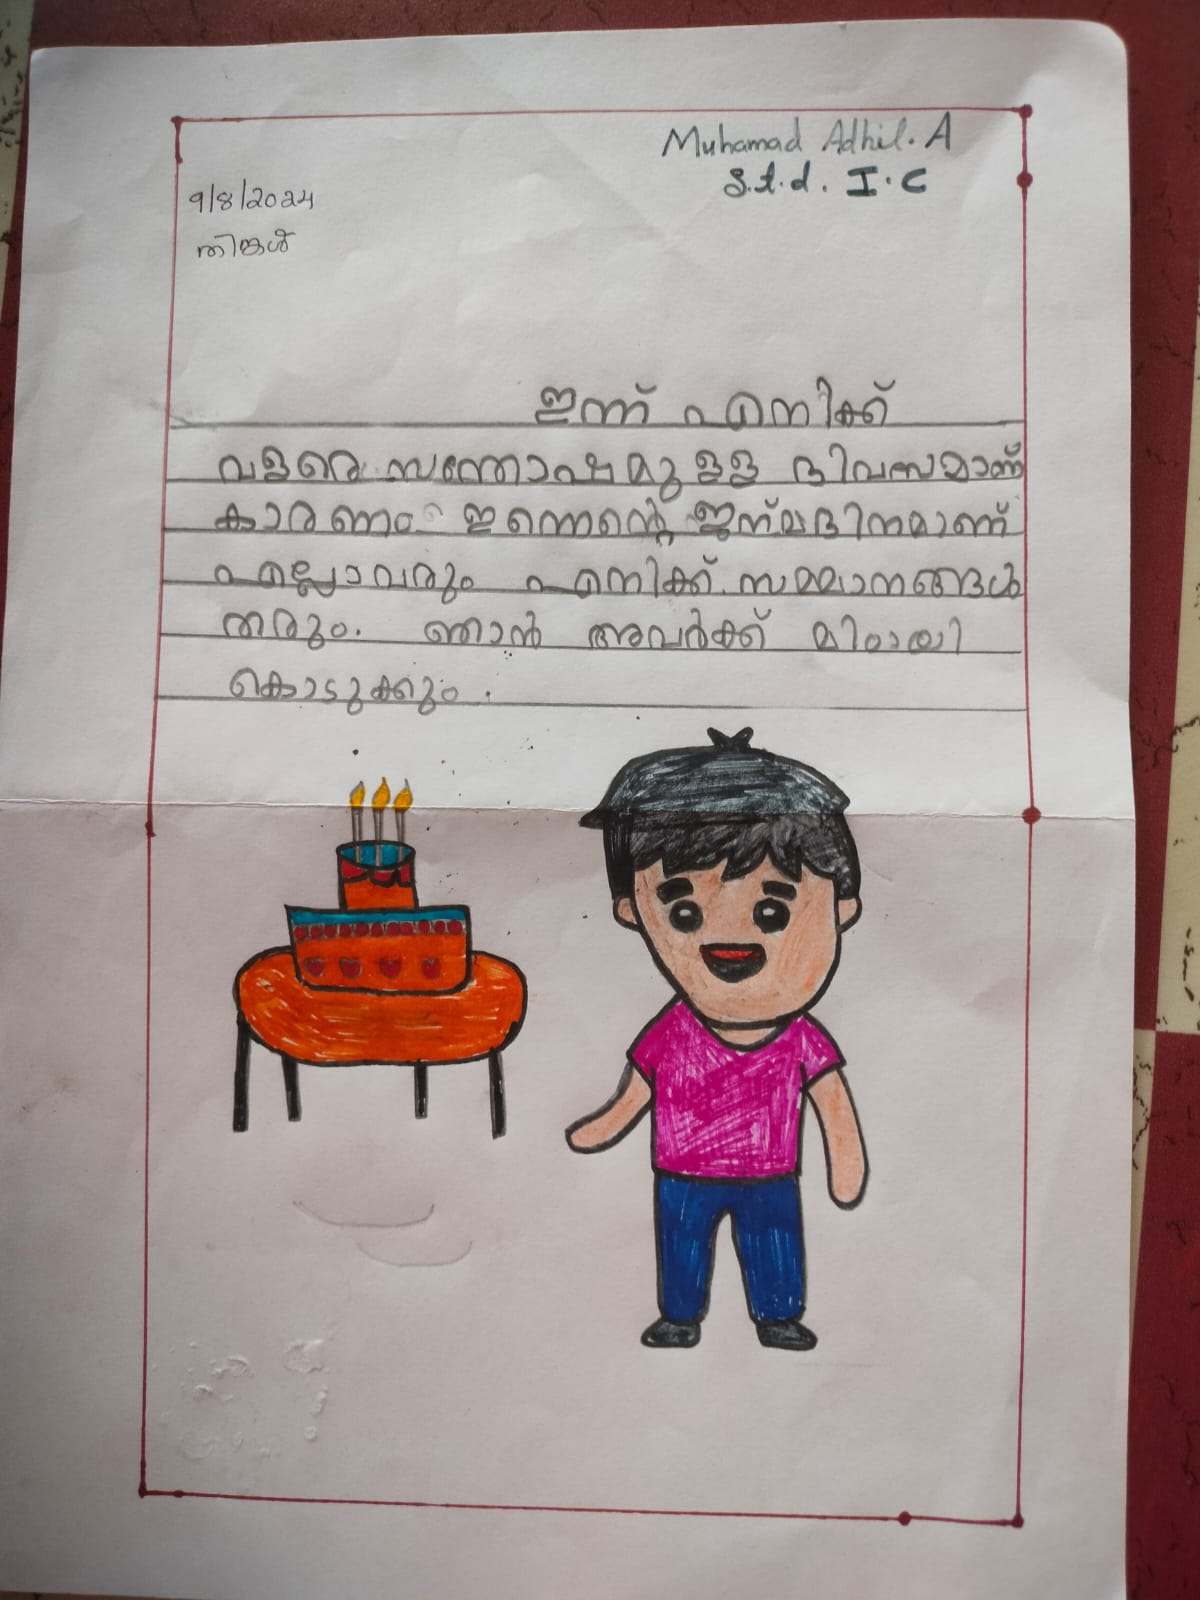 Muhamad Adhil. A
S.t.d. I.C
9/8/2024
തിങ്കൾ
ഇന്ന് എനിക്ക്
വളരെ സന്തോഷമുള്ള ദിവസമാണ്
കാരണം ഇന്നെന്റെ ജന്മദിനമാണ്
എല്ലാവരും എനിക്ക് സമ്മാനങ്ങൾ
തരും. ഞാൻ അവർക്ക് മിഠായി
കൊടുക്കും.